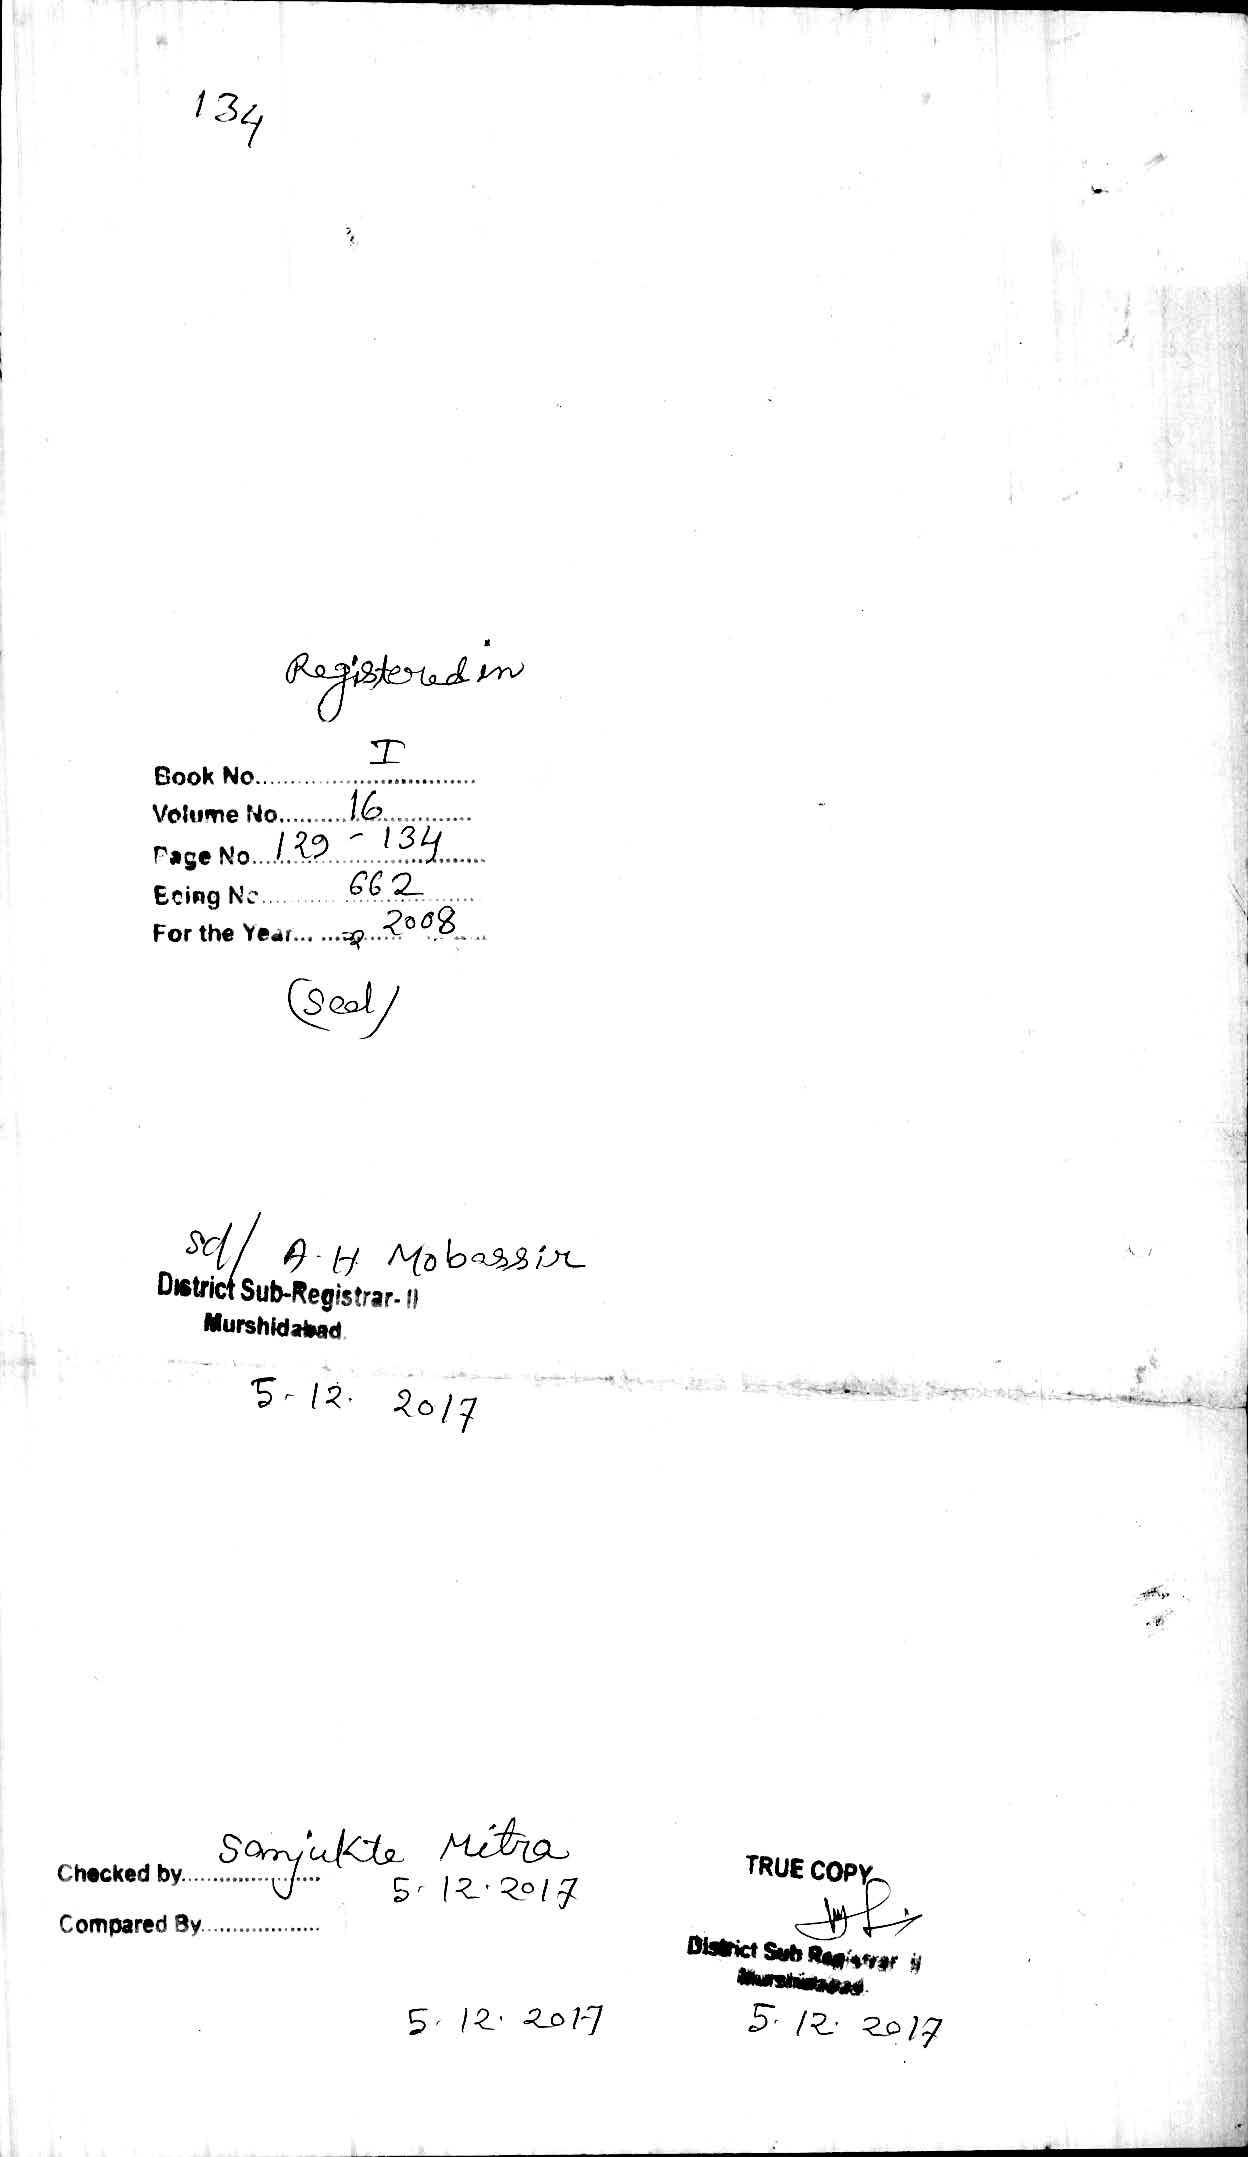 134
Registered in
Book No. I
Volume No. 16
Page No. 129 - 134
Being No. 662
For the Year... 2008
(Seal)
sd/ A. H. Mobassir
District Sub-Registrar- II
Murshidabad.
5 - 12. 2017
Checked by Sanjukta Mitra
5. 12. 2017
Compared By
5. 12. 2017
TRUE COPY
District Sub Registrar II
Murshidabad.
5. 12. 2017